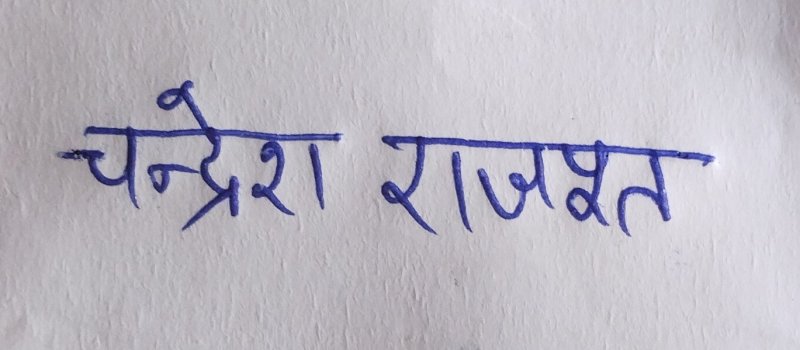 चन्द्रेश राजपूत